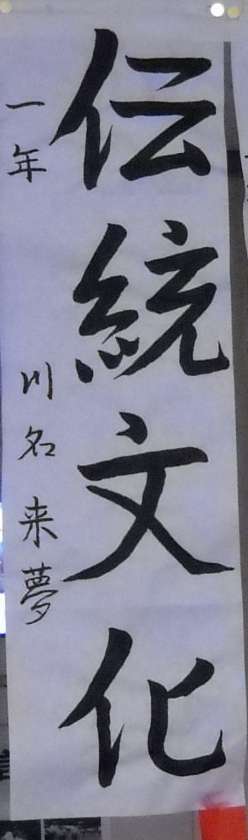 伝統文化
一年 川名来夢